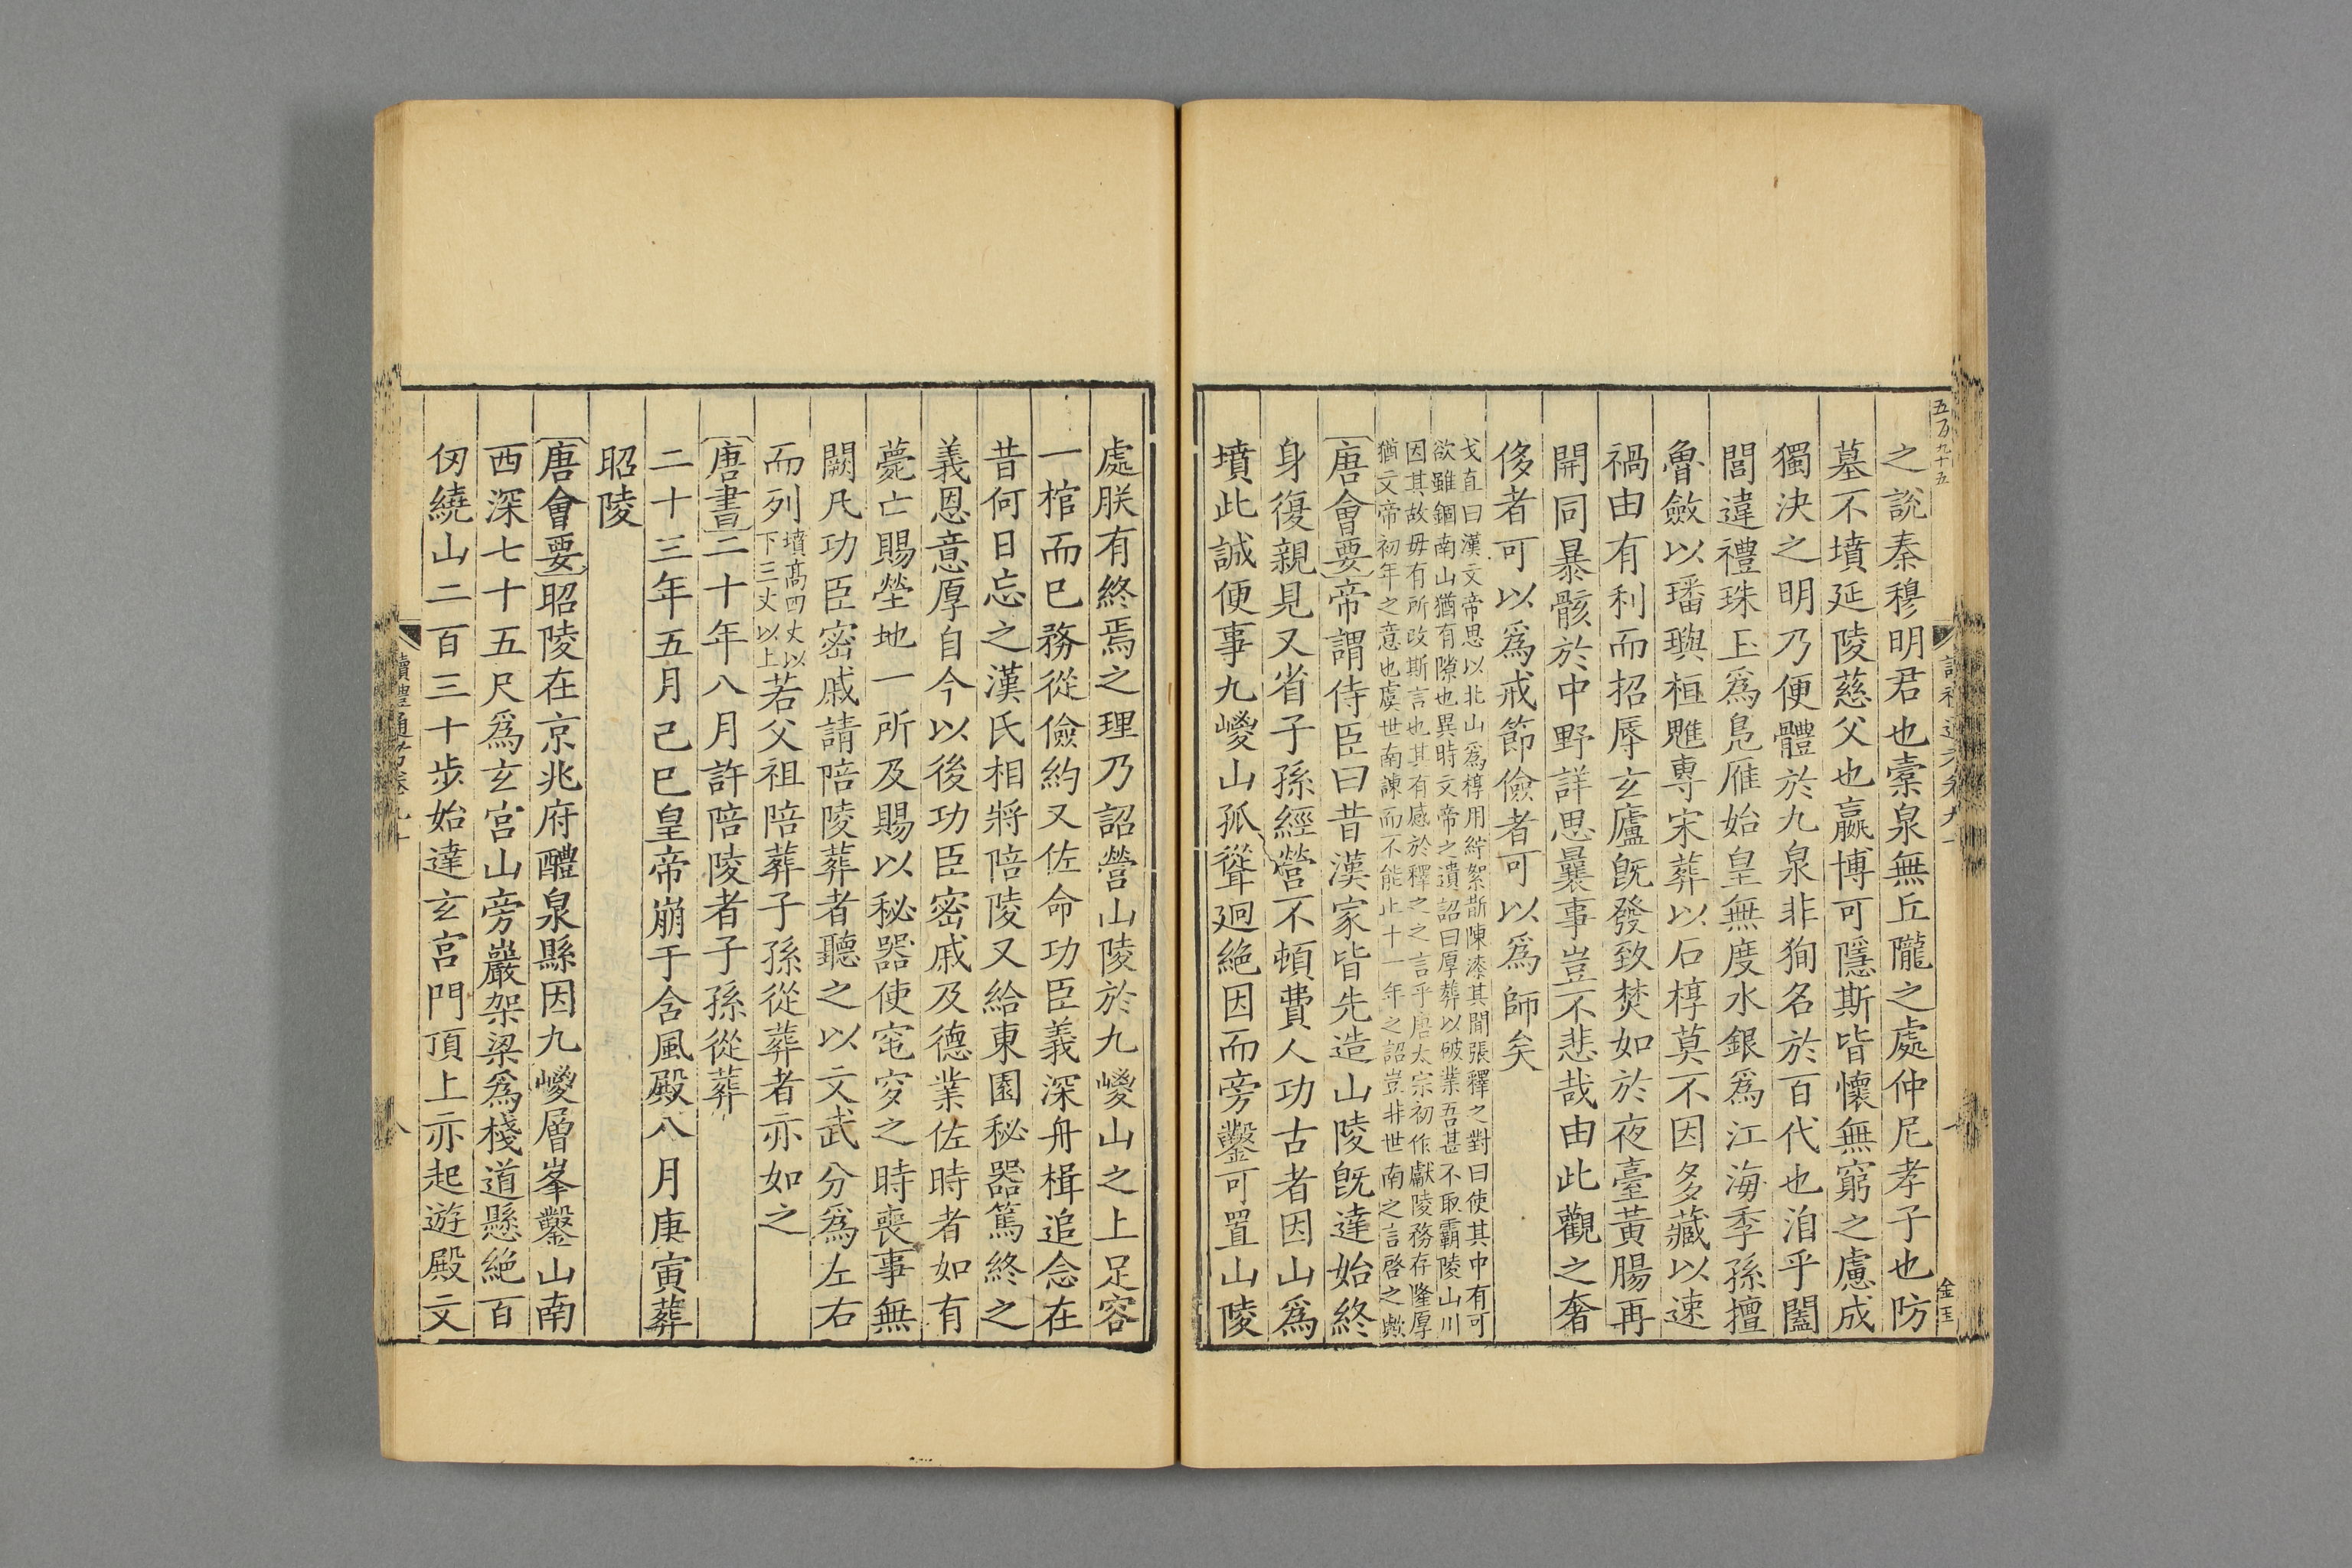 五百九十五
金玉
之說秦穆明君也橐泉無丘隴之處仲尼孝子也防
墓不墳延陵慈父也嬴博可隱斯皆懷無窮之慮成
獨決之明乃便體於九泉非狥名於百代也洎乎闔
閭違禮珠玉爲鳬雁始皇無度水銀爲江海季孫擅
魯斂以璠璵桓魋專宋葬以石椁莫不因多藏以速
禍由有利而招辱玄廬旣發致焚如於夜臺黃腸再
開同暴骸於中野詳思曩事豈不悲哉由此觀之奢
侈者可以爲戒節儉者可以爲師矣
戈直曰漢文帝思以北山爲椁用紵絮斮陳漆其閒張釋之對曰使其中有可
欲雖錮南山猶有隙也異時文帝之遺詔曰厚葬以破業吾甚不取霸陵山川
因其故毋有所改斯言也其有感於釋之之言乎唐太宗初作獻陵務存隆厚
猶文帝初年之意也虞世南諫而不能止十一年之詔豈非世南之言啓之歟
〔唐會要〕帝謂侍臣曰昔漢家皆先造山陵旣達始終
身復親見又省子孫經營不頓費人功古者因山爲
墳此誠便事九嵕山孤聳迴絶因而旁鑿可置山陵
處朕有終焉之理乃詔營山陵於九嵕山之上足容
一棺而已務從儉約又佐命功臣義深舟楫追念在
昔何日忘之漢氏相將陪陵又給東園秘器篤終之
義恩意厚自今以後功臣密戚及德業佐時者如有
薨亡賜塋地一所及賜以秘器使窀穸之時喪事無
闕凡功臣密戚請陪陵葬者聽之以文武分爲左右
而列墳高四丈以下三丈以上若父祖陪葬子孫從葬者亦如之
〔唐書〕二十年八月許陪陵者子孫從葬
二十三年五月己巳皇帝崩于含風殿八月庚寅葬
昭陵
〔唐會要〕昭陵在京兆府醴泉縣因九嵕層峯鑿山南
西深七十五尺爲玄宮山旁巖架梁爲棧道懸絶百
仞繞山二百三十步始達玄宮門頂上亦起遊殿文
讀禮通考卷九十
八